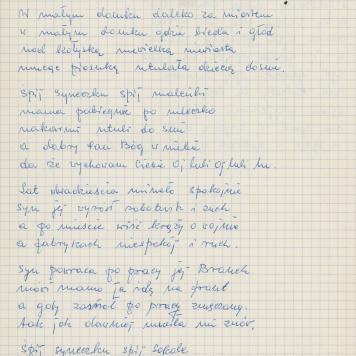 W małym domku daleko za miastem
w małym domku gdzie bieda i głód
nad kołyską niewielką niewiasta
nucąc piosnkę utulała dziecię do snu.
Śpij syneczku śpij maleńki
mama pobiegnie po mleczko
nakarmi utuli do snu
a dobry Pan Bóg w niebie
da że wychowam Ciebie Oj luli oj luli lu.
Lat dwadzieścia minęło spokojnie
syn jej wyrósł robotnik i zuch
a po mieście wieść krąży o wojnie
a fabrykach niepokój i ruch.
Syn powraca po pracy jej
mówi mamo ja idę na front
a gdy zasnął po pracy zmęczony
tak jak dawniej nuciła mu znów.
Śpij syneczku śpij